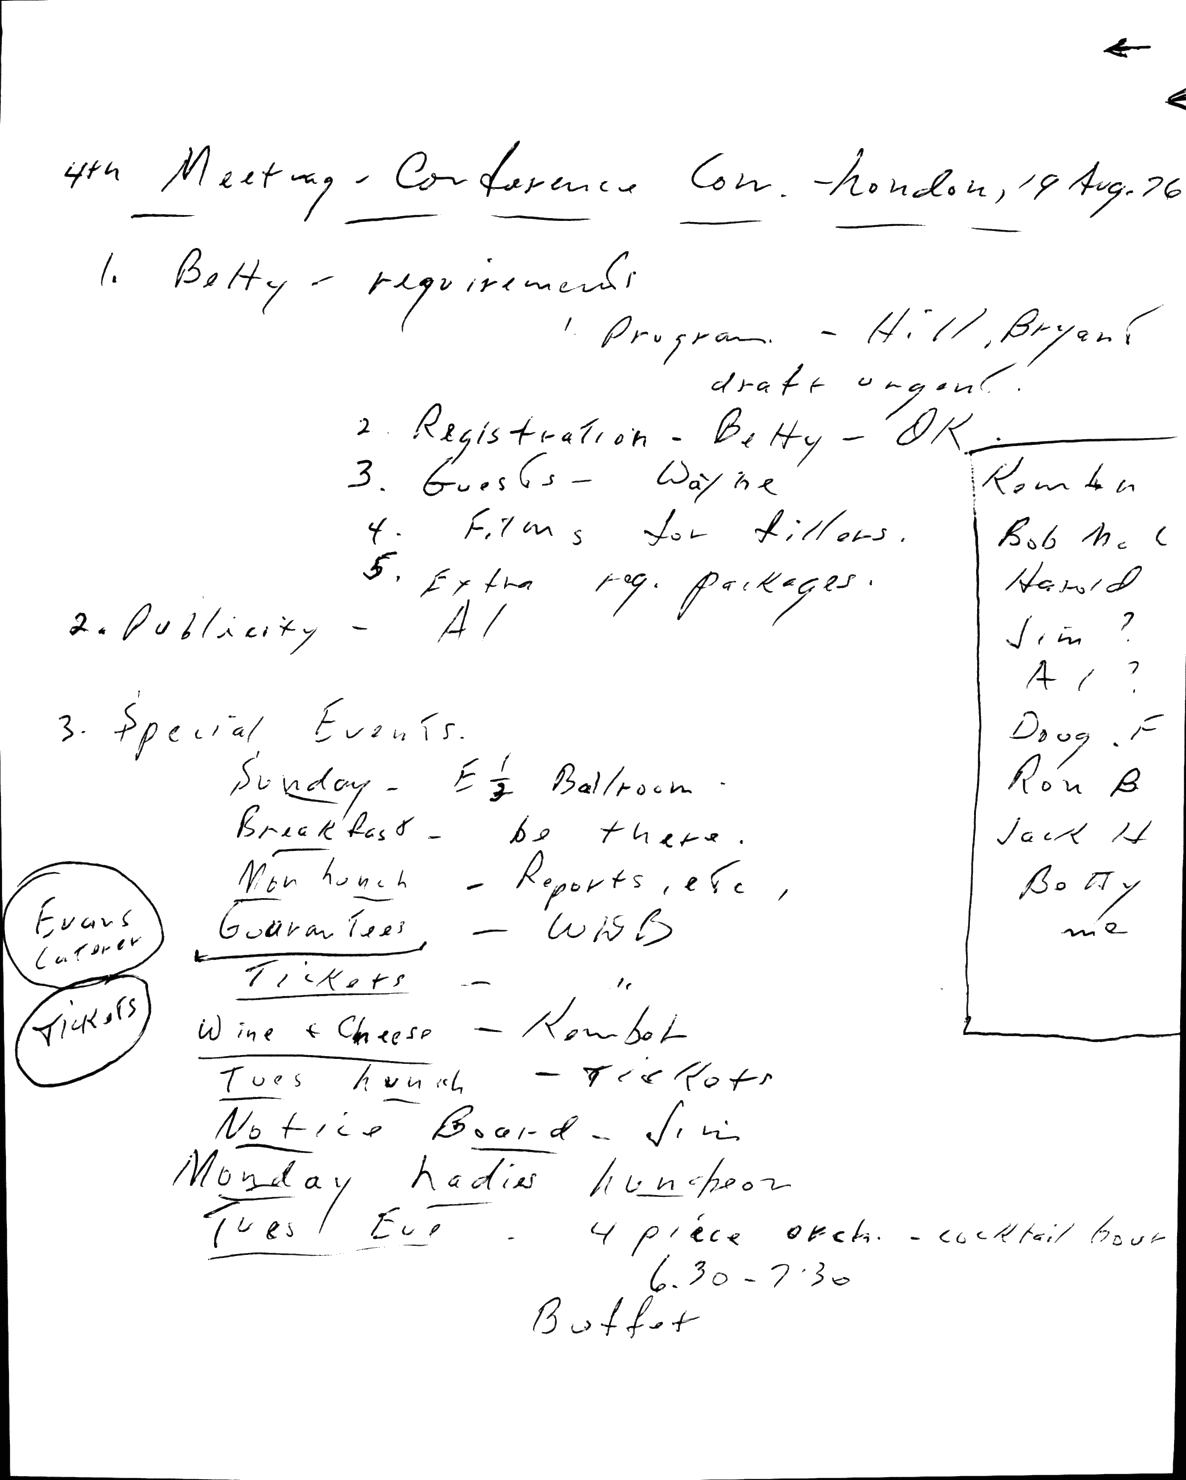 4th Meeting - Conference Com. - London, 19 Aug. 76
1. Betty - requirements
1. Program - Hill, Bryant
draft urgent.
2. Registration - Betty - OK.
3. Guests - Wayne
4. Films for fillers.
5. Extra reg. packages.
2. Publicity - Al
3. Special Events.
Sunday - E 1/2 Ballroom.
Breakfast - be there.
Mon Lunch - Reports, etc,
Guarantees - WGB
Tickets - "
Wine & Cheese - Kember
Tues Lunch - Tickets
Notice Board - Jim
Monday Ladies Luncheon
Tues Eve. 4 piece orch. - cocktail hour
6.30 - 7.30
Buffet
Evans
Caterer
Tickets
Bob Mc C
Harold
Jim ?
Al ?
Doug. F
Ron B
Jack H
Betty
me